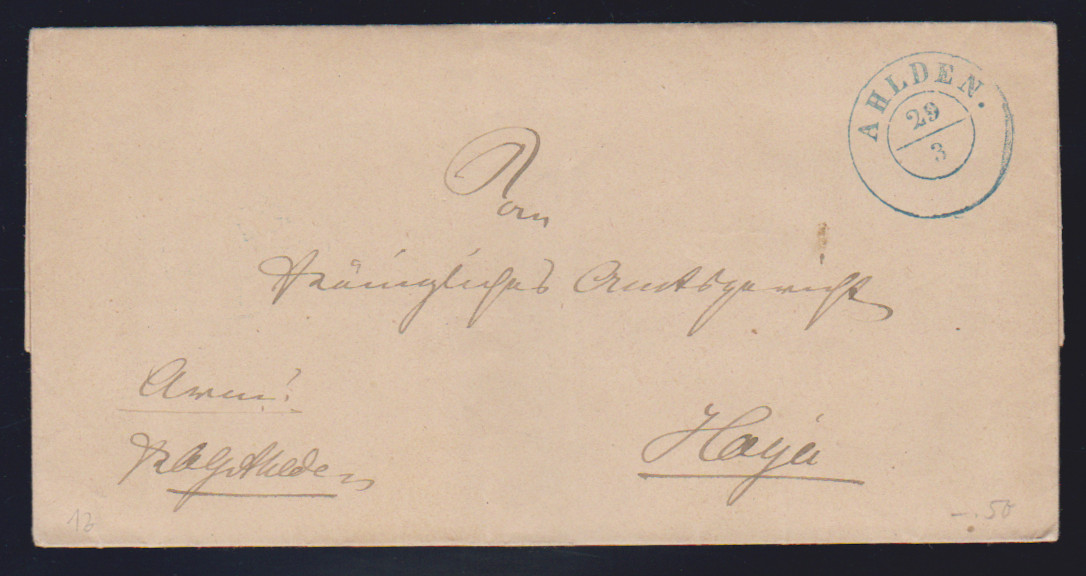 AHLDEN.
29
3
Dem
Königliches Amtsgericht
Armen!
KAG Ahlden
Hoya
12
-.50